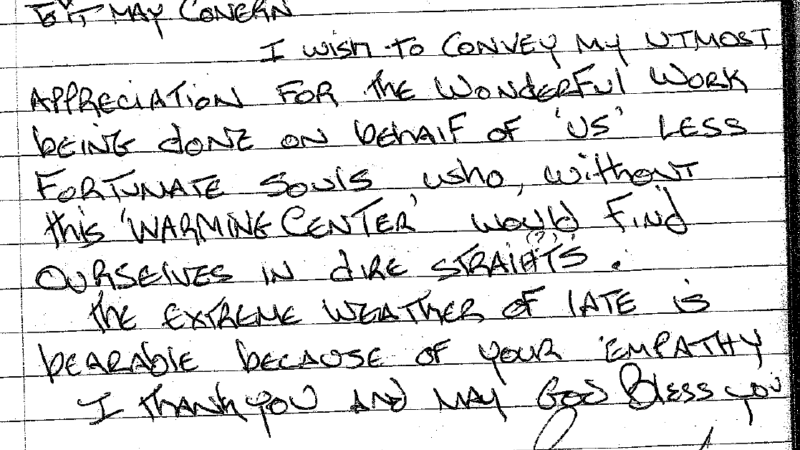 To it MAY CONERN
I wish to CONVEY MY UTMOST
APPRECIATION FOR the WONDERFUL WORK
bEING donE ON bEhALF OF 'US' LESS
FORTUNATE SOULS who, without
this 'WARMING CENTER' would FIND
(??)
OURSELVES IN dIRE STRAIHTS.
the EXTREME WEATHER OF LATE is
bEARAblE bECAUSE OF YOUR 'EMPATHY
I thANK YOU ANd MAY GOD BLESS YOU